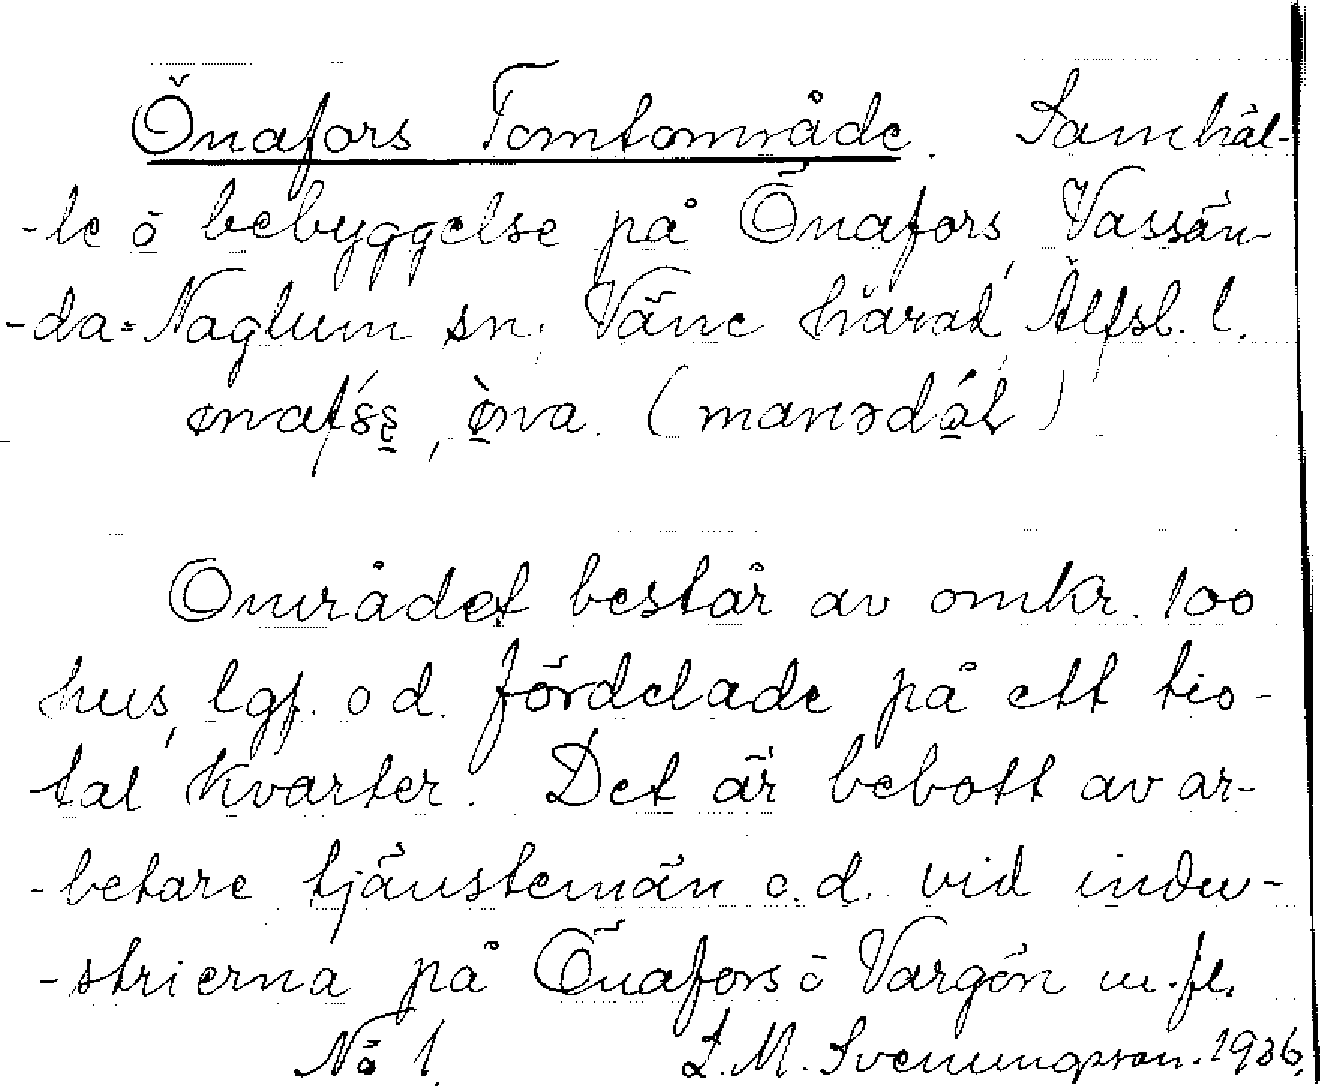 Önafors Tomtområde. Samhäl-
-le ö bebyggelse på Önafors, Vassän-
-da-Naglum sn. Väne härad, Älfsb. l.
(
)
Området består av omkr. 100
hus, lgf. o d. fördelade på ett tio-
tal kvarter. Det är bebott av ar-
-betare tjänstemän o.d. vid indu-
-strierna på Önafors ö Vargön m.fl.
No 1. S. M. Svenungsson. 1936.